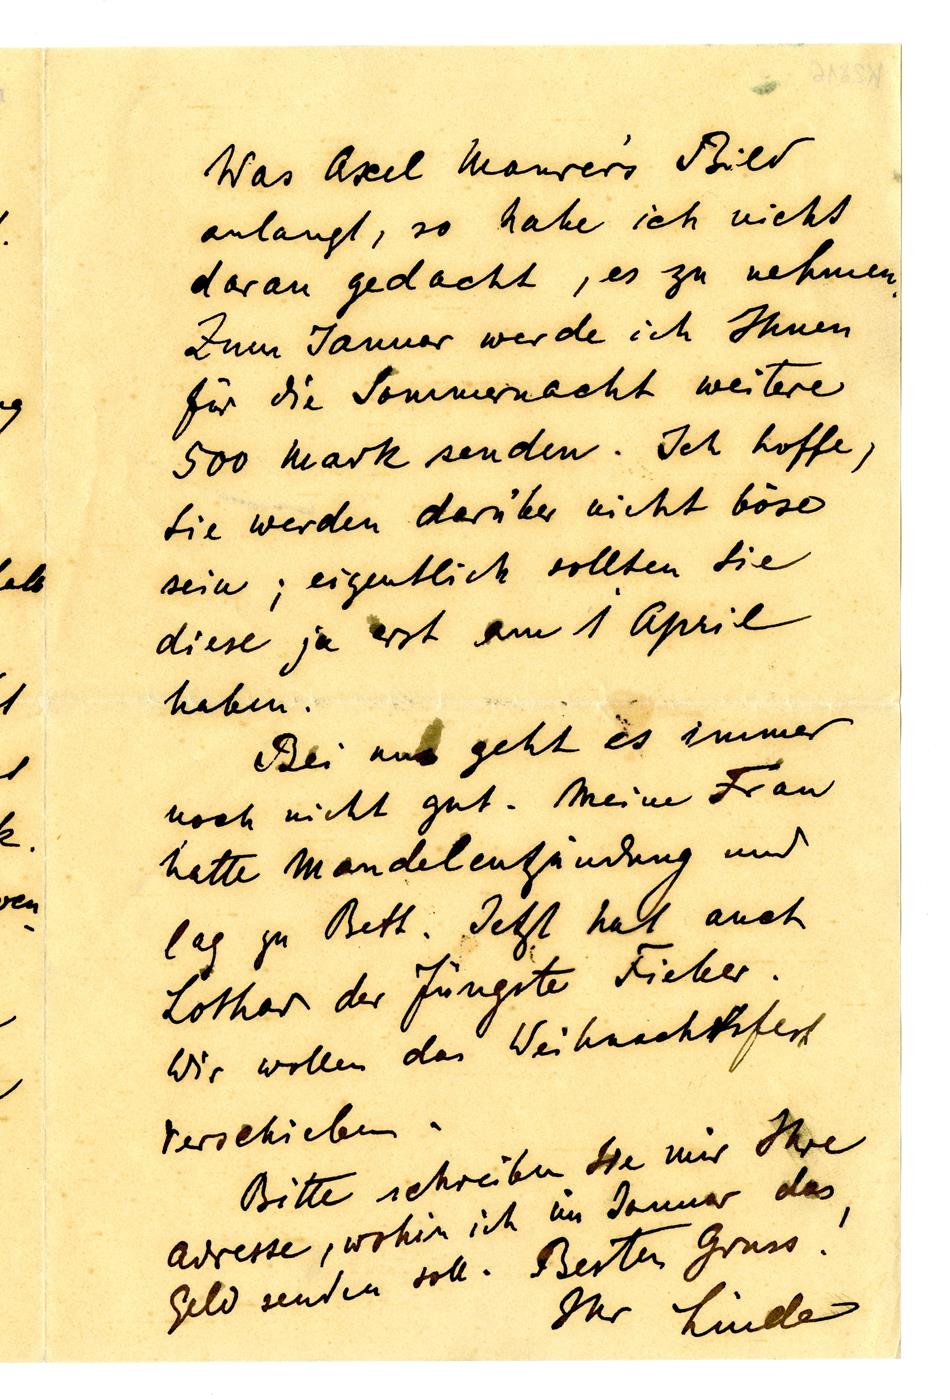 Was Axel Maurer's Bild
anlangt, so habe ich nicht
daran gedacht, es zu nehmen.
Zum Januar werde ich Ihnen
für die Sommernacht weitere
500 Mark senden. Ich hoffe,
Sie werden darüber nicht böse
sein; eigentlich sollten Sie
diese ja erst am 1 April
haben.
Bei uns geht es immer
noch nicht gut. Meine Frau
hatte Mandelentzündung und
lag zu Bett. Jetzt hat auch
Lothar der Jüngste Fieber.
Wir wollen das Weihnachtsfest
verschieben.
Bitte schreiben Sie mir Ihre
Adresse, wohin ich im Januar das
Geld senden soll. Besten Gruss!
Ihr Linde